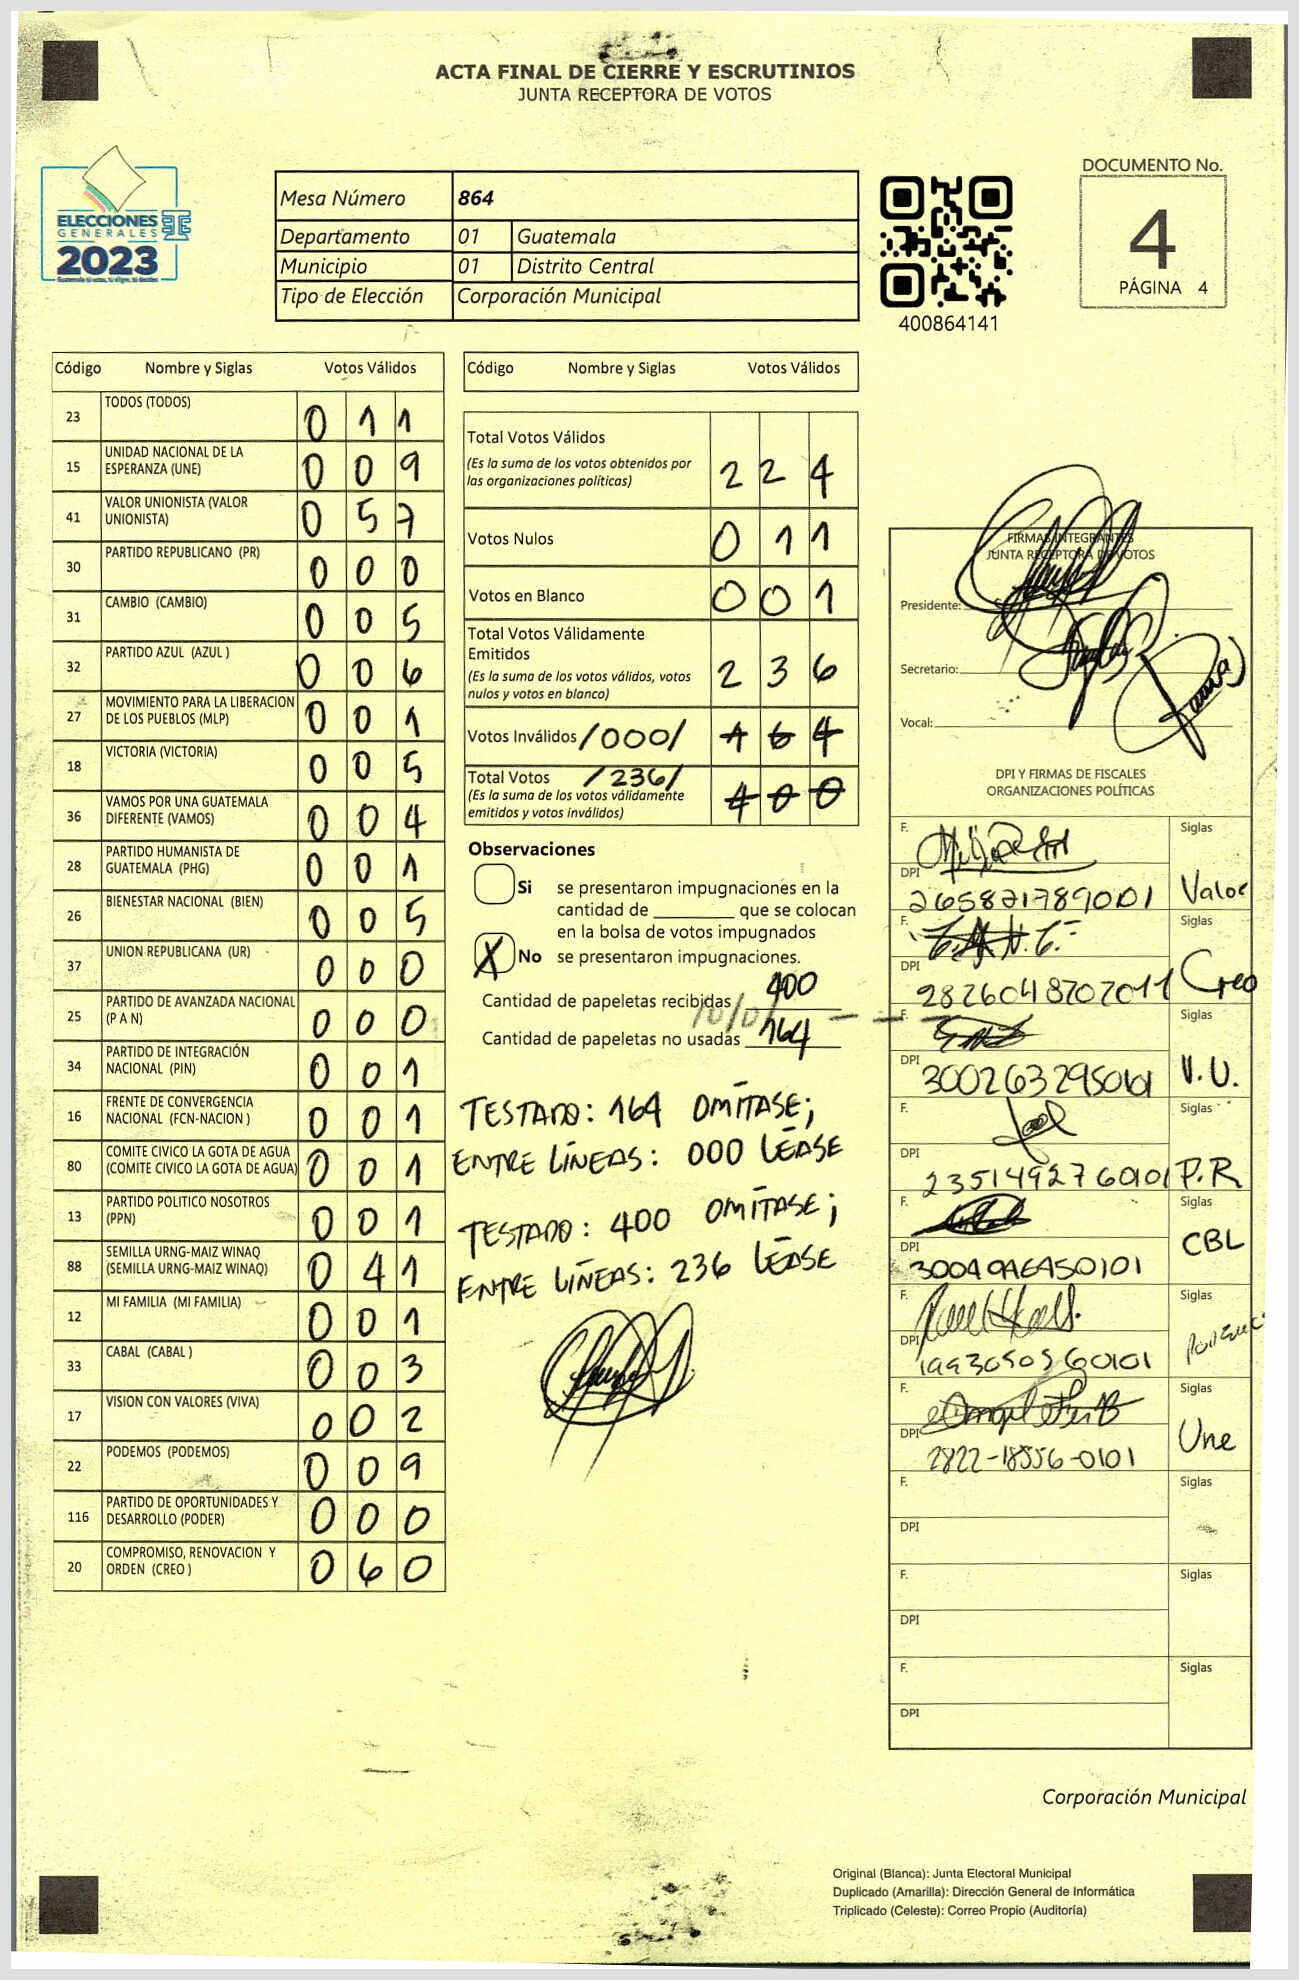 ACTA FINAL DE CIERRE Y ESCRUTINIOS
JUNTA RECEPTORA DE VOTOS
ELECCIONES
GENERALES
2023
Mesa Número 864
Departamento 01 Guatemala
Municipio 01 Distrito Central
Tipo de Elección Corporación Municipal
400864141
DOCUMENTO No.
4
PÁGINA 4
Código Nombre y Siglas Votos Válidos
23 TODOS (TODOS) 0 1 1
15 UNIDAD NACIONAL DE LA ESPERANZA (UNE) 0 0 9
41 VALOR UNIONISTA (VALOR UNIONISTA) 0 5 7
30 PARTIDO REPUBLICANO (PR) 0 0 0
31 CAMBIO (CAMBIO) 0 0 5
32 PARTIDO AZUL (AZUL ) 0 0 6
27 MOVIMIENTO PARA LA LIBERACION DE LOS PUEBLOS (MLP) 0 0 1
18 VICTORIA (VICTORIA) 0 0 5
36 VAMOS POR UNA GUATEMALA DIFERENTE (VAMOS) 0 0 4
28 PARTIDO HUMANISTA DE GUATEMALA (PHG) 0 0 1
26 BIENESTAR NACIONAL (BIEN) 0 0 5
37 UNION REPUBLICANA (UR) 0 0 0
25 PARTIDO DE AVANZADA NACIONAL (P A N) 0 0 0
34 PARTIDO DE INTEGRACIÓN NACIONAL (PIN) 0 0 1
16 FRENTE DE CONVERGENCIA NACIONAL (FCN-NACION ) 0 0 1
80 COMITE CIVICO LA GOTA DE AGUA (COMITE CIVICO LA GOTA DE AGUA) 0 0 1
13 PARTIDO POLITICO NOSOTROS (PPN) 0 0 1
88 SEMILLA URNG-MAIZ WINAQ (SEMILLA URNG-MAIZ WINAQ) 0 4 1
12 MI FAMILIA (MI FAMILIA) 0 0 1
33 CABAL (CABAL ) 0 0 3
17 VISION CON VALORES (VIVA) 0 0 2
22 PODEMOS (PODEMOS) 0 0 9
116 PARTIDO DE OPORTUNIDADES Y DESARROLLO (PODER) 0 0 0
20 COMPROMISO, RENOVACION Y ORDEN (CREO ) 0 6 0
Código Nombre y Siglas Votos Válidos
Total Votos Válidos 2 2 4
(Es la suma de los votos obtenidos por
las organizaciones políticas)
Votos Nulos 0 1 1
Votos en Blanco 0 0 1
Total Votos Válidamente
Emitidos 2 3 6
(Es la suma de los votos válidos, votos
nulos y votos en blanco)
Votos Inválidos /000/ 1 6 4
Total Votos /236/ 4 0 0
(Es la suma de los votos válidamente
emitidos y votos inválidos)
Observaciones
Si se presentaron impugnaciones en la
cantidad de ________ que se colocan
en la bolsa de votos impugnados
X No se presentaron impugnaciones.
Cantidad de papeletas recibidas 400
Cantidad de papeletas no usadas 164
TESTADO: 164 OMÍTASE;
ENTRE LÍNEAS: 000 LÉASE
TESTADO: 400 OMÍTASE;
ENTRE LÍNEAS: 236 LÉASE
FIRMAS INTEGRANTES
JUNTA RECEPTORA DE VOTOS
Presidente:
Secretario:
Vocal:
DPI Y FIRMAS DE FISCALES
ORGANIZACIONES POLÍTICAS
F. Siglas
DPI 2658717890101 Valor
F. Siglas
DPI 2826048707011 Creo
F. Siglas
DPI 3002632950101 V.U.
F. Siglas
DPI 2351492760101 P.R
F. Siglas
DPI CBL
F. Siglas
DPI 1993050560101
F. Siglas
DPI 2822-18556-0101 Une
F. Siglas
DPI
F. Siglas
DPI
F. Siglas
DPI
Corporación Municipal
Original (Blanca): Junta Electoral Municipal
Duplicado (Amarilla): Dirección General de Informática
Triplicado (Celeste): Correo Propio (Auditoría)